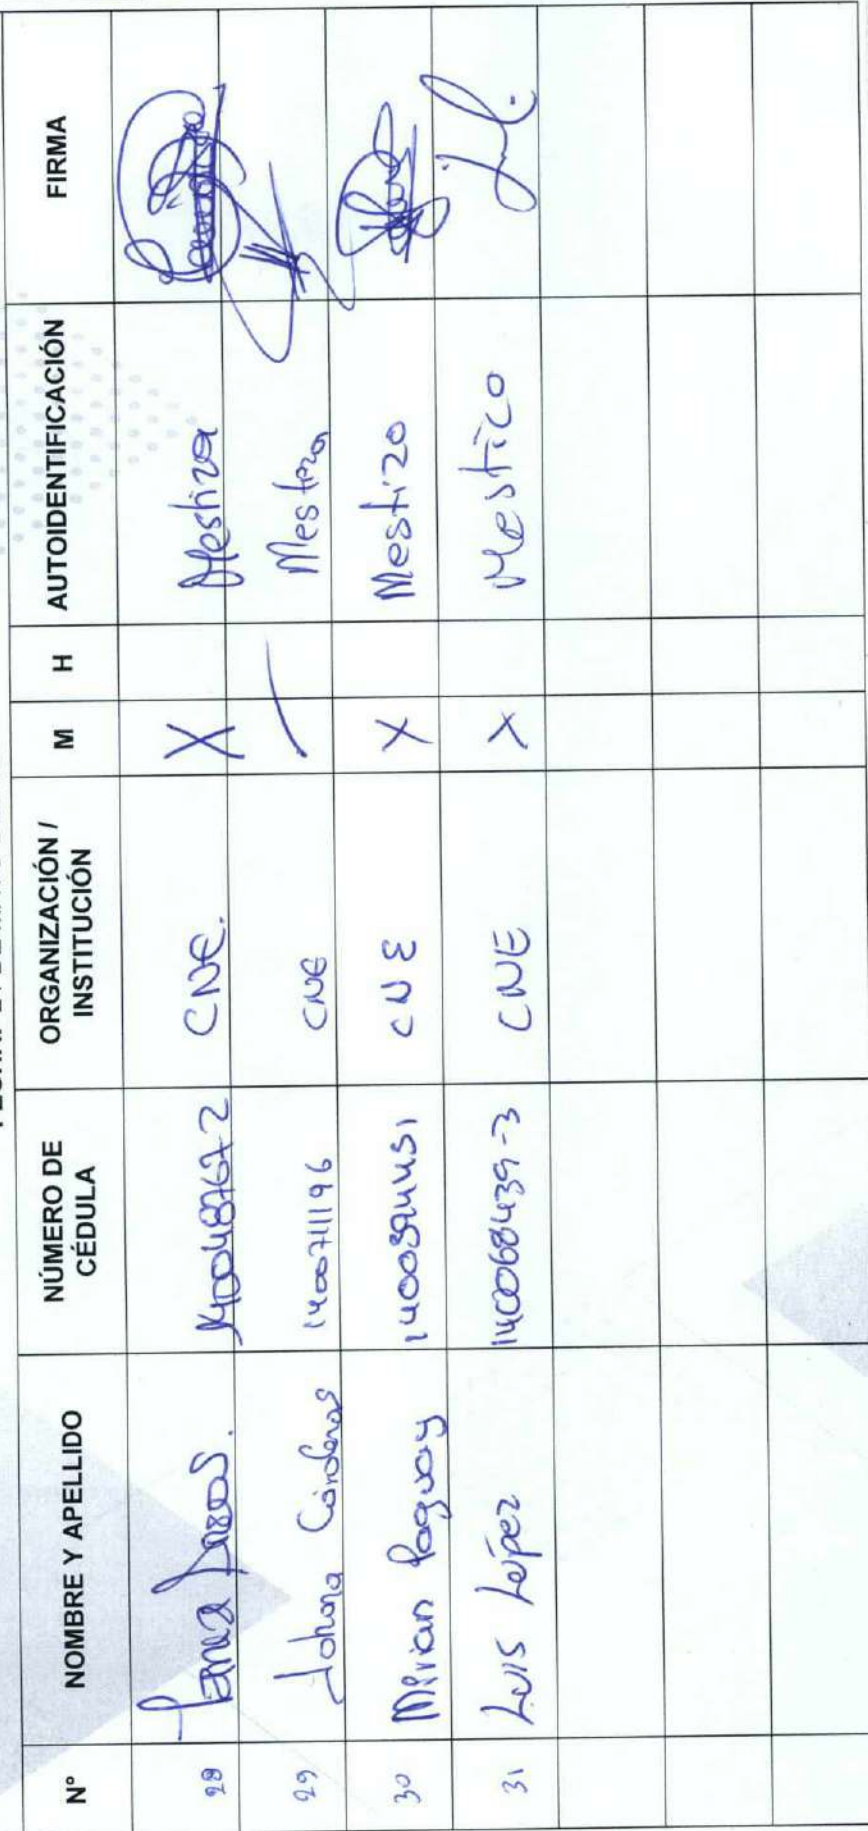 N° NOMBRE Y APELLIDO NÚMERO DE CÉDULA ORGANIZACIÓN / INSTITUCIÓN M H AUTOIDENTIFICACIÓN FIRMA
28 CNE. X Mestiza
29 Johana Cárdenas 1400711196 CNE Mestiza
30 Mirian Paguay CNE X Mestizo
31 Luis López 140068439-3 CNE X Mestico